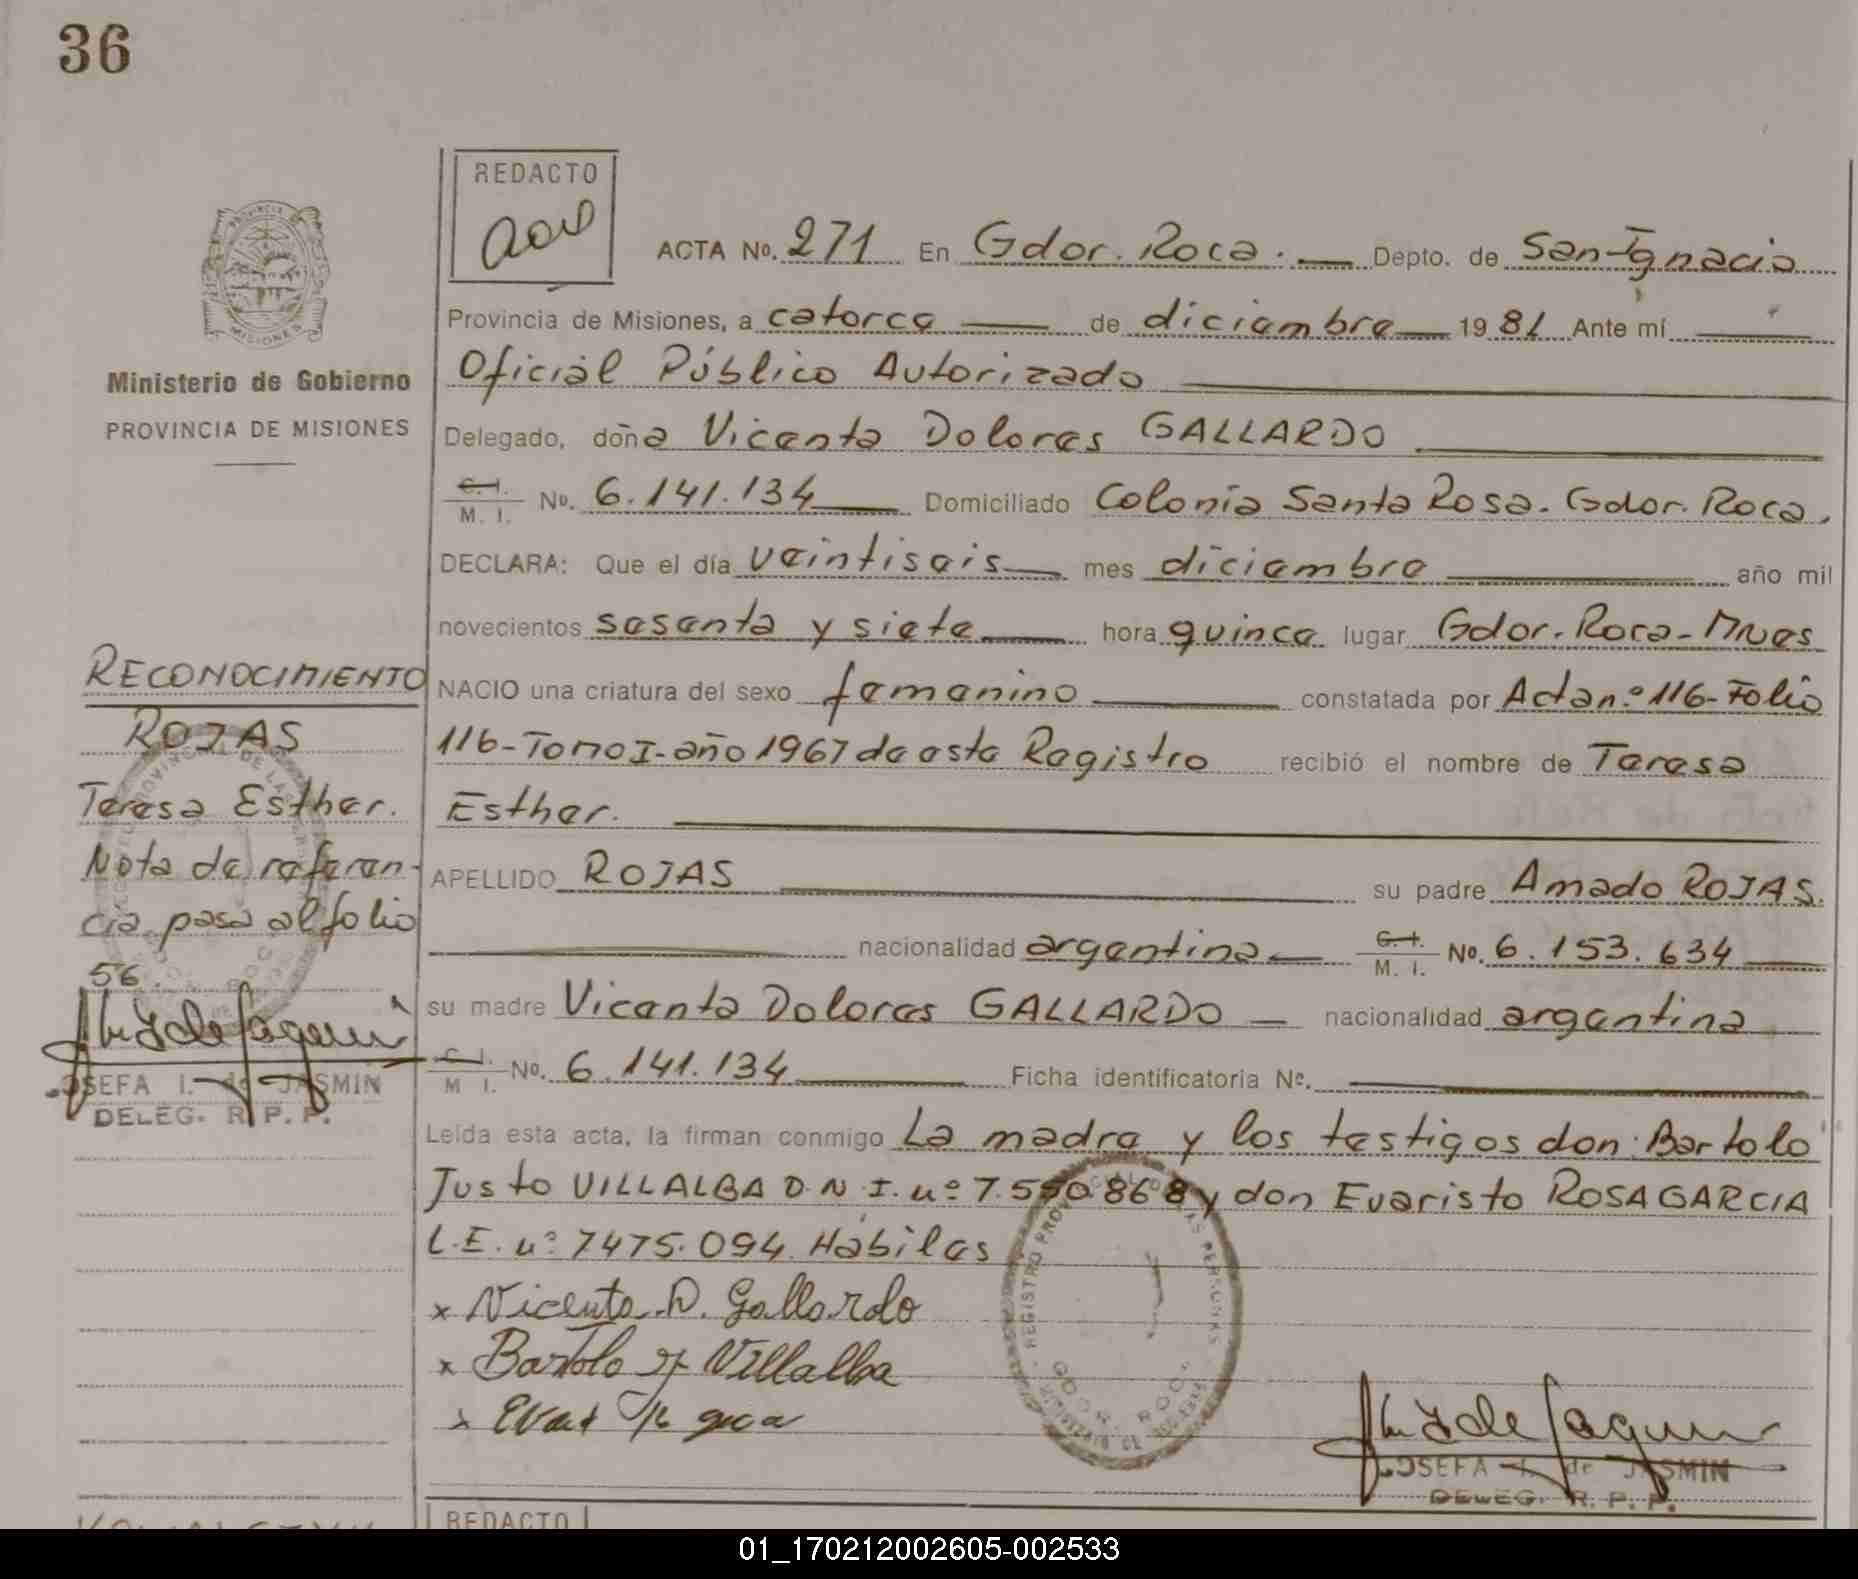 36
REDACTO
ACTA No. 271 En Gdor. Roca. Depto. de San Ignacio
Provincia de Misiones, a catorce de diciembre 1981 Ante mí
Oficial Público Autorizado
Ministerio de Gobierno
PROVINCIA DE MISIONES
Delegado, doña Vicenta Dolores GALLARDO
C. I.
M. I. No. 6.141.134 Domiciliado Colonia Santa Rosa. Gdor. Roca.
DECLARA: Que el día veintiseis mes diciembre año mil
novecientos sesenta y siete hora quince lugar Gdor. Roca-Mnes
NACIO una criatura del sexo femenino constatada por Acta n.º 116-Folio
116-Tomo I-año 1967 de este Registro recibió el nombre de Teresa
Esther.
APELLIDO ROJAS su padre Amado ROJAS.
nacionalidad argentina C. I.
M. I. No. 6.153.634
su madre Vicenta Dolores GALLARDO nacionalidad argentina
C. I.
M I. No. 6.141.134 Ficha identificatoria Nº.
Leída esta acta, la firman conmigo La madre y los testigos don: Bartolo
Justo VILLALBA D.N.I. nº 7.550.868 y don Evaristo ROSA GARCIA
L.E. nº 7475.094. Hábiles
x Vicenta D. Gallardo
x Bartolo J Villalba
x
RECONOCIMIENTO
ROJAS
Teresa Esther.
Nota de referen-
cia pasa al folio
56.
JOSEFA I. de JASMIN
DELEG. R. P. P.
REGISTRO PROVINCIAL DE LAS PERSONAS
GDOR. ROCA
JOSEFA I. de JASMIN
DELEG. R. P. P.
REDACTO
01_170212002605-002533